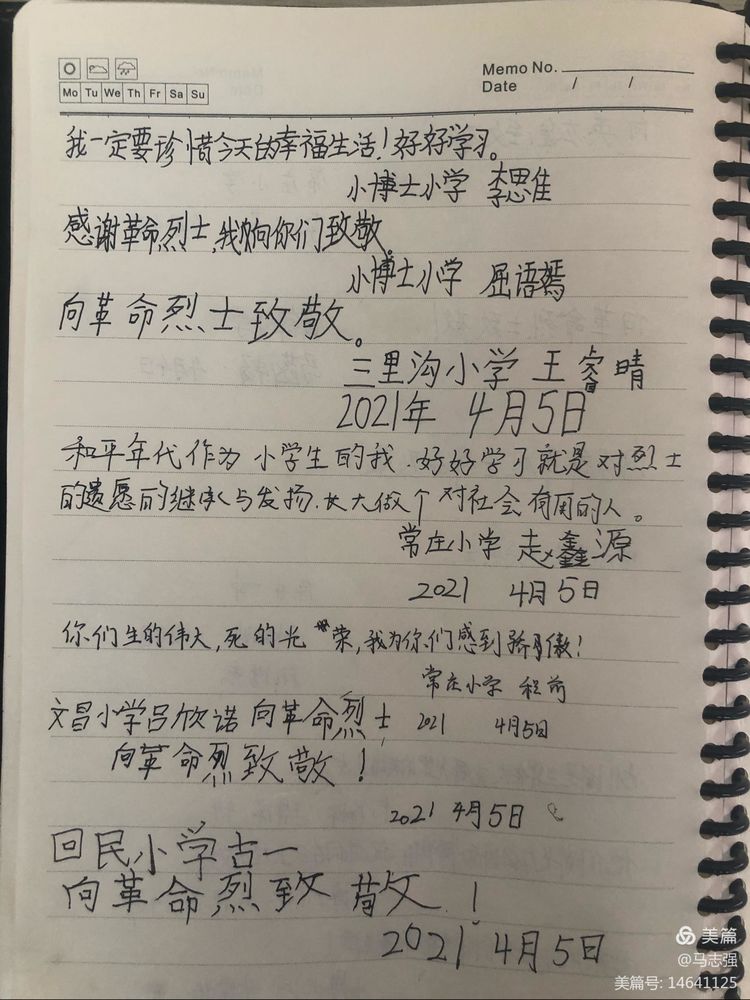 Memo No.
Mo Tu We Th Fr Sa Su
Date / /
我一定要珍惜今天的幸福生活!好好学习。
小博士小学 李思佳
感谢革命烈士,我向你们致敬。
小博士小学 屈语嫣
向革命烈士致敬。
三里沟小学 王睿晴
2021年 4月5日
和平年代作为小学生的我.好好学习就是对烈士
的遗愿的继承与发扬.长大做个对社会有用的人。
常庄小学 赵鑫源
2021 4月5日
你们生的伟大,死的光荣,我为你们感到骄傲!
常庄小学 程前
文昌小学吕欣诺向革命烈士,
2021 4月5日
向革命烈致敬!
2021 4月5日
回民小学古一
向革命烈致敬!
2021 4月5日
美篇
@马志强
美篇号: 14641125